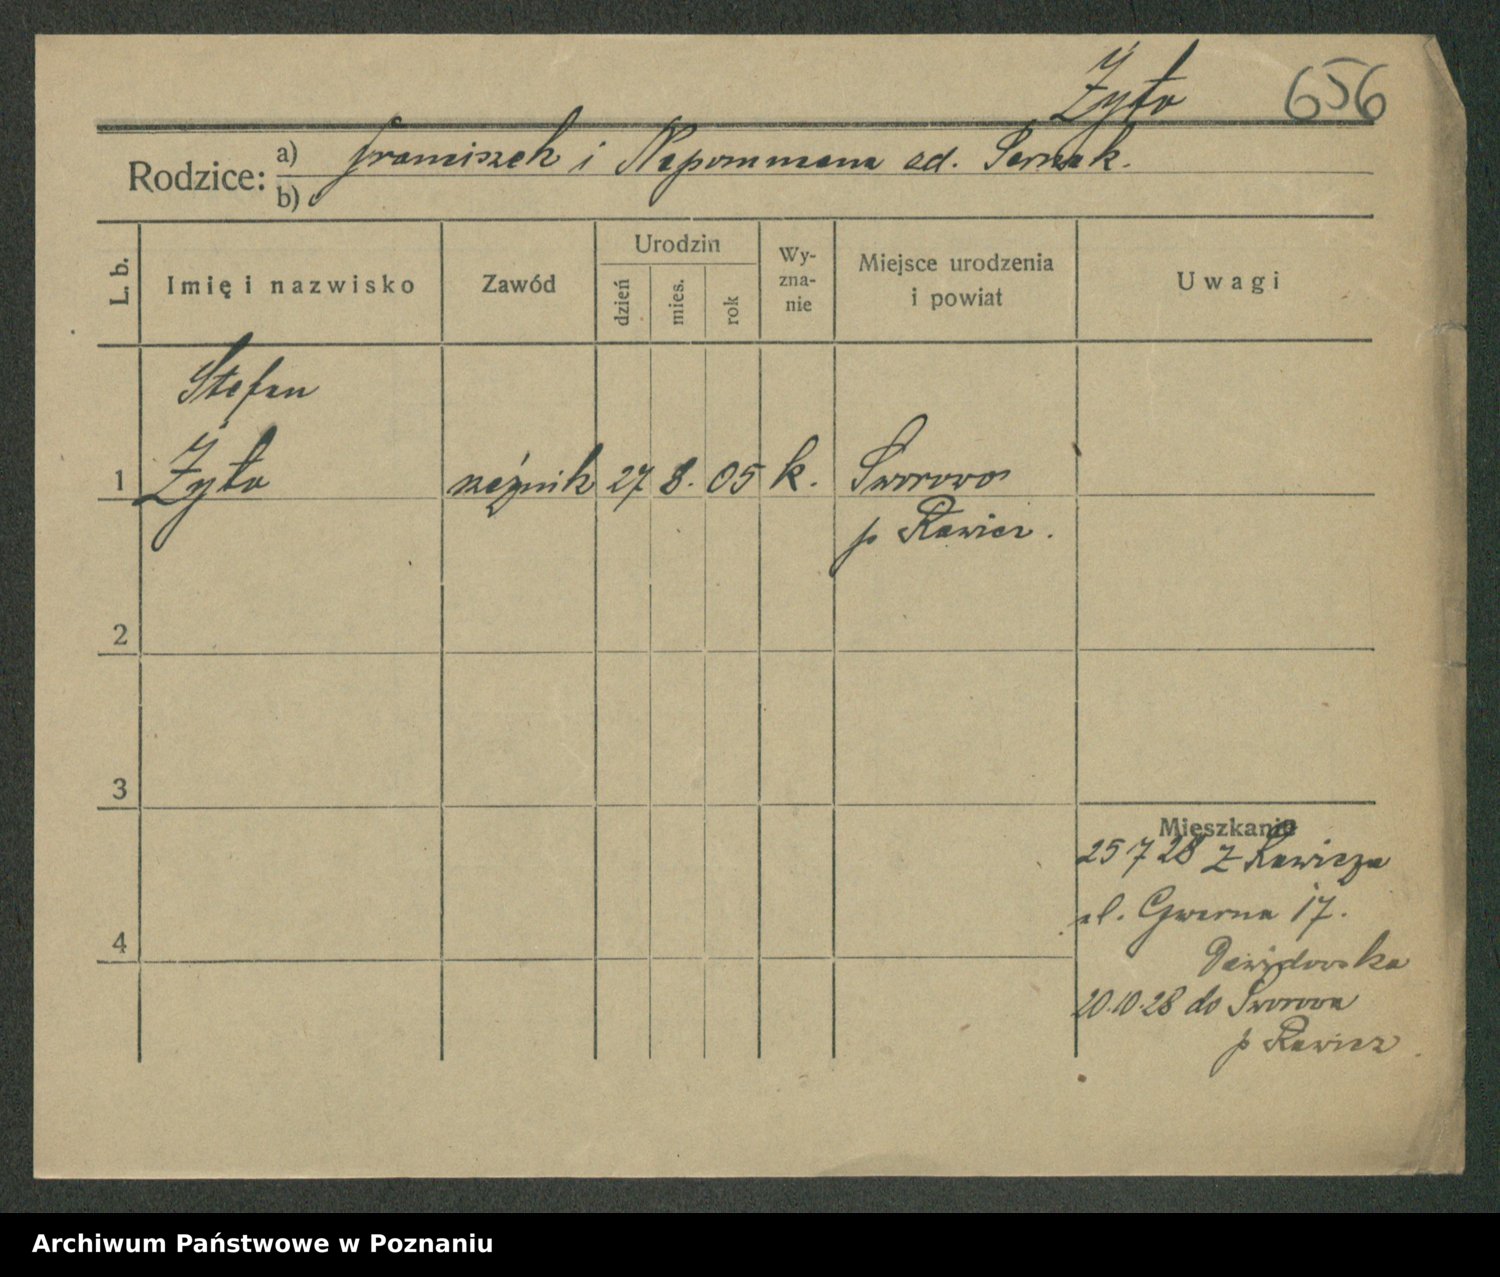 Żyto 656
Rodzice: a) Franciszek i Nepomucena od. Sernak.
b)
L. b. Imię i nazwisko Zawód Urodzin dzień mies. rok Wy-zna-nie Miejsce urodzenia i powiat Uwagi
Stefan
1 Żyto rzeźnik 27 8. 05 k. Sworowo
p Rawicz.
2
3
Mieszkanie
25 7 28 z Rawicza
ul. Gwarna 17.
4
Dawidowska
20.10.28 do Sworowa
p Rawicz
Archiwum Państwowe w Poznaniu